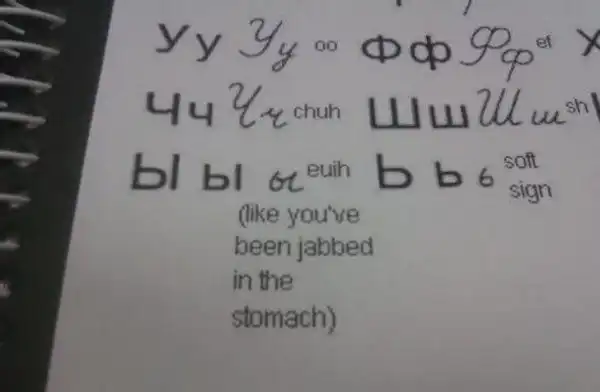 У у У у oo Ф ф Ф ф ef Х
Ч ч Ч ч chuh Ш ш Ш ш sh
Ы ы ы euih Ь ь ь soft sign
(like you've
been jabbed
in the
stomach)